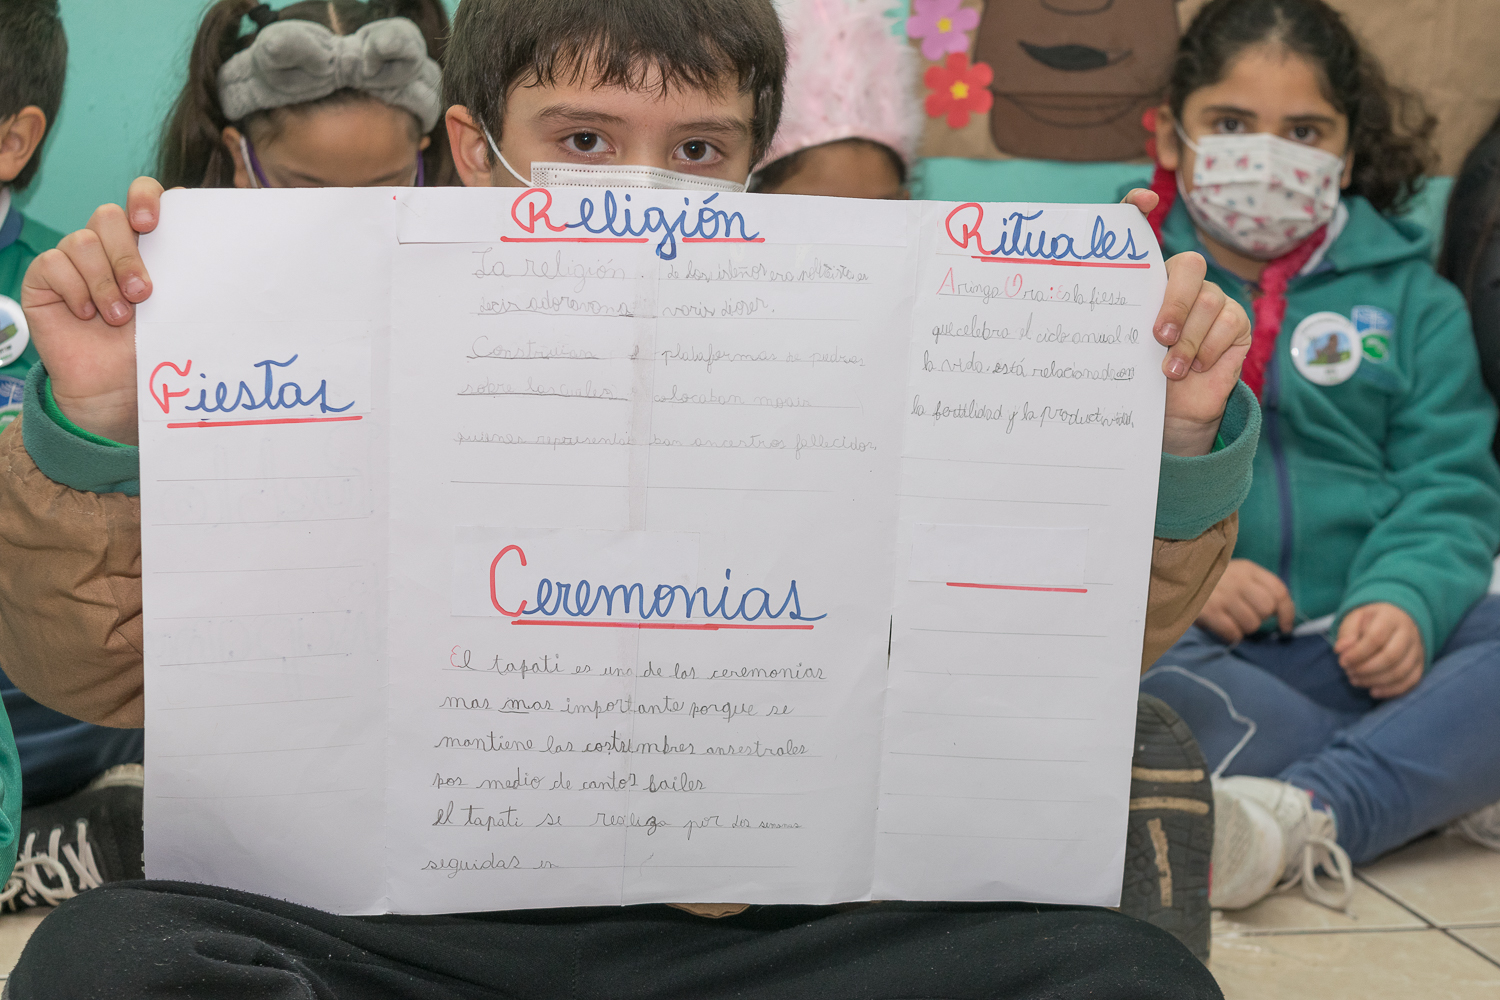 Fiestas
Religión
La religión. de los isleños era politeista es
decir adoravan a varios dioses.
Construían plataformas de piedras
sobre las cuales colocaban moais
quienes representa ban ancestros fallecidos
Ceremonias
El tapati es una de las ceremonias
mas mas importante porque se
mantiene las costumbres ansestrales
pos medio de cantos bailes
el tapati se realiza por dos semanas
seguidas en
Rituales
Aringa Ora: Es la fiesta
que celebra el ciclo anual de
la vida está relacionada con
la fertilidad y la productividad